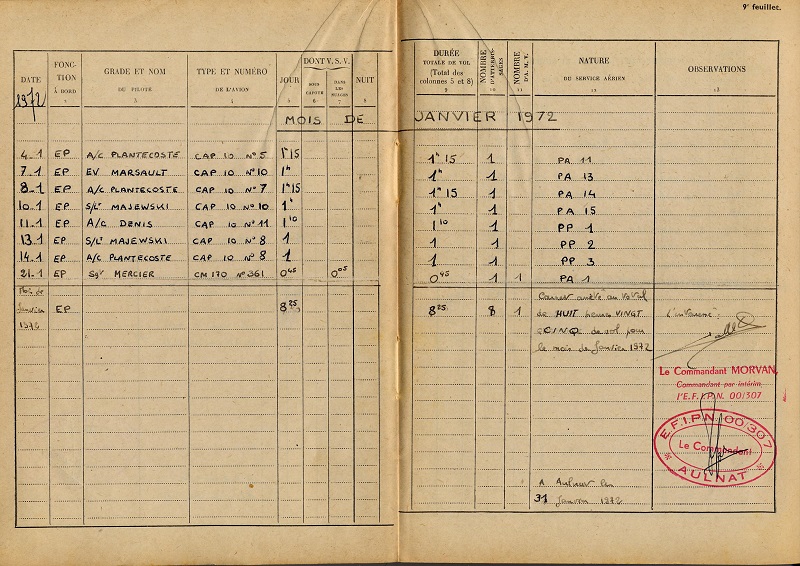 9e feuillet.
DATE
1972
FONCTION
À BORD
GRADE ET NOM
DU PILOTE
TYPE ET NUMÉRO
DE L'AVION
JOUR
DONT V. S. V.
SOUS CAPOTE
DANS LES NUAGES
NUIT
DURÉE
TOTALE DE VOL
(Total des
colonnes 5 et 8)
NOMBRE D'ATTERRISSAGES
NOMBRE D'A. M. V.
NATURE
DU SERVICE AÉRIEN
OBSERVATIONS
1 2 3 4 5 6 7 8 9 10 11 12 13
MOIS DE JANVIER 1972
4-1 EP A/C PLANTECOSTE CAP 10 N°5 1h15 1h15 1 PA 11
7-1 EP EV MARSAULT CAP 10 N°10 1h 1h 1 PA 13
8-1 EP A/C PLANTECOSTE CAP 10 N°7 1h15 1h15 1 PA 14
10-1 EP S/Lt MAJEWSKI CAP 10 N°10 1h 1h 1 PA 15
11-1 EP A/C DENIS CAP 10 N°11 1 10 1 10 1 PP 1
13-1 EP S/Lt MAJEWSKI CAP 10 N°8 1 1 1 PP 2
14-1 EP A/C PLANTECOSTE CAP 10 N°8 1 1 1 PP 3
21-1 EP Sgt MERCIER CM 170 N°361 0 45 0 05 0 45 1 1 PA 1
Mois de
Janvier EP 8 25 8 25 8 1
1972
Carnet arrêté au total
de HUIT heures VINGT
CINQ de vol pour
le mois de Janvier 1972
L'intéressé :
Le Commandant MORVAN,
Commandant par intérim,
l'E.F.I.P.N. 00/307
E.F.I.P.N. 00/307
Le Commandant
AULNAT
A Aulnat le
31 Janvier 1972